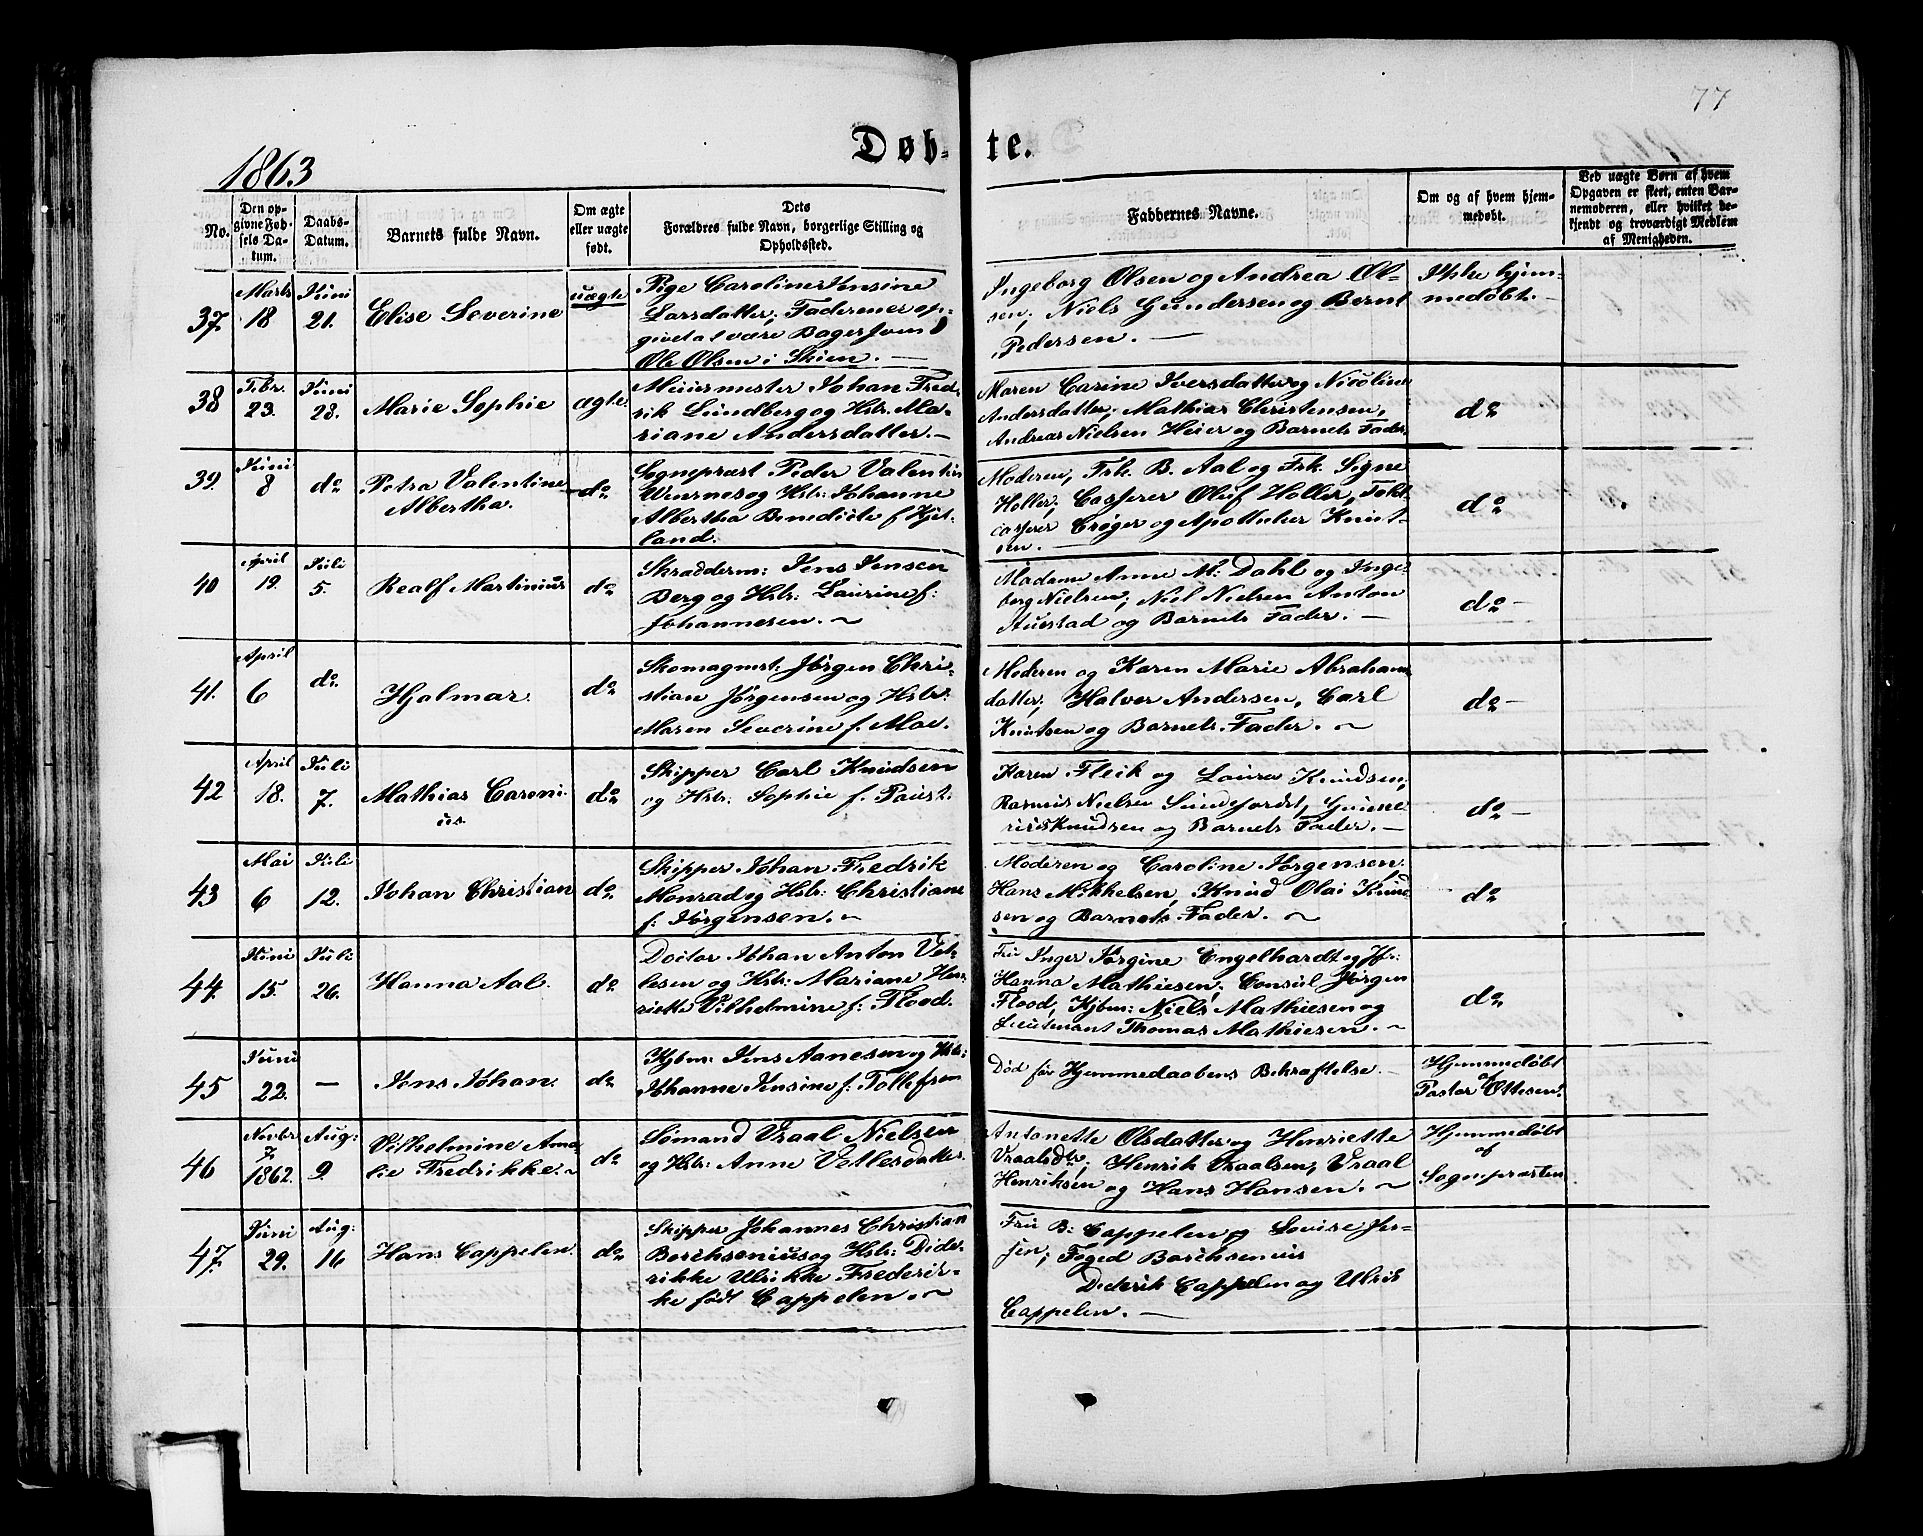 77
1863
Døb-te.
No.
Den op-
givne Fød-
sels Da-
tum.
Daabs-
Datum.
Barnets fulde Navn.
Om ægte
eller uægte
født.
Dets
Forældres fulde Navn, borgerlige Stilling og
Opholdssted.
Faddernes Navne.
Om og af hvem hjem-
medøbt.
Ved uægte Børn af hvem
Opgaven er skeet, enten Bar-
nemoderen, eller hvilket be-
kjendt og troværdigt Medlem
af Menigheden.
37.
Marts
18
Juni
21.
Elise Severine
uægte
Pige Caroline Jensine
Larsdatter; Faderen er op-
givet at være Bager
Ole Olsen i Skien. —
Ingeborg Olsen og Andrea Ol-
sen; Niels Gundersen og Bernt
Pedersen. —
Ikke hjem-
medøbt. —
38
Febr.
23.
Juni
28.
Marie Sophie
ægte.
Muurmester Johan Fred-
rik Lundberg og Hstr. Ma-
riane Andersdatter. —
Maren Carine Iversdatter og Nicoline
Andersdatter; Mathias Christensen,
Andreas Nielsen Heier og Barnets Fader.
do
39.
Juni
8
do
Petra Valentine
Albertha.
do
Sognepræst Peder Valentin
og Hstr: Johanne
Albertha Benedicte f. Kjel-
land.
Moderen, Frk. B. Aal og Frk. Signe
Holler; Casserer Oluf Holler, Told-
casserer Crøger og Apotheker Knut-
sen. —
do
40
April
19.
Juli
5.
Realf Martinius
do
Skrædderm: Jens Jensen
Berg og Hstr: Laurine f:
Johannesen. ~
Madame Anne M: Dahl og Inge-
borg Nielsen; Niel Nielsen Anton
Auestad og Barnets Fader. —
do —
41.
April
6
do.
Hjalmar.
do
Skomagmst. Jørgen Chri-
stian Jørgensen og Hstr:
Maren Severine f. Moe.
Moderen og Karen Marie Abrahams
datter; Halvor Andersen, Carl
Knutsen og Barnets Fader. ~
do —
42
April
18.
Juli
7.
Mathias Caroni-
us.
do
Skipper Carl Knudsen
og Hstr: Sophie f. Paust.
Karen Fleik og Laura Knudsen,
Rasmus Nielsen
Knudsen og Barnets Fader. —
do —
43
Mai
6
Juli
12.
Johan Christian
do.
Skipper Johan Fredrik
Monrad og Hstr: Christiane
f: Jørgensen. ~
Moderen og Caroline Jørgensen.
Hans Mikkelsen, Knud Olai Knud
sen og Barnets Fader. ~
do
44.
Juni
15.
Juli
26.
Hanna Aal.
do
Doctor Johan Anton Vet-
lesen og Hstr: Mariane Hen-
riette Vilhelmine f: Flood.
Fru Inger Jørgine Engelhardt og Jfr:
Hanna Mathiesen; Consul Jørgen
Flood, Kjbm: Niels Mathiesen og
Lieutenant Thomas Mathiesen. ~
do
45
Juni
22.
—
Jens Johan.
do
Kjbm: Jens Aanesen og Hstr:
Johanne Jensine f: Tollefsen
Død før Hjemmedaabens Bekræftelse. —
Hjemmedøbt
af
Pastor Ottesen.
46
Novbr.
7.
1862.
Aug:
9.
Vilhelmine Ama-
lie Fredrikke. ~
do
Sømand Vraal Nielsen
og Hstr: Anne Vetlesdatter.
Antonette Olsdatter og Henriette
Vraalsdtr; Henrik Vraalsen, Vraal
Henriksen og Hans Hansen. ~
Hjemmedøbt
af
Sognepræsten.
47.
Juni
29.
Aug.
16
Hans Cappelen.
do
Skipper Johannes Christian
Borchsenius og Hstr: Dide-
rikke Ulrikke Frederik-
ke født Cappelen. ~
Fru B: Cappelen og Lovise Jes-
sen; Foged Borchsenius
Diderik Cappelen og Ulrik
Cappelen. —